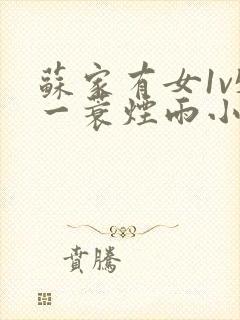 蘇家有女1v
一蓑煙雨小
賁騰